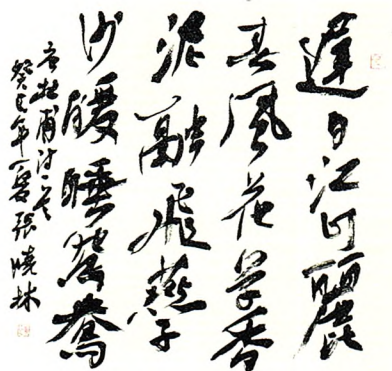 遲日江山麗
春風花草香
泥融飛燕子
沙暖睡鴛鴦
右杜甫詩一首
癸巳年張曉林